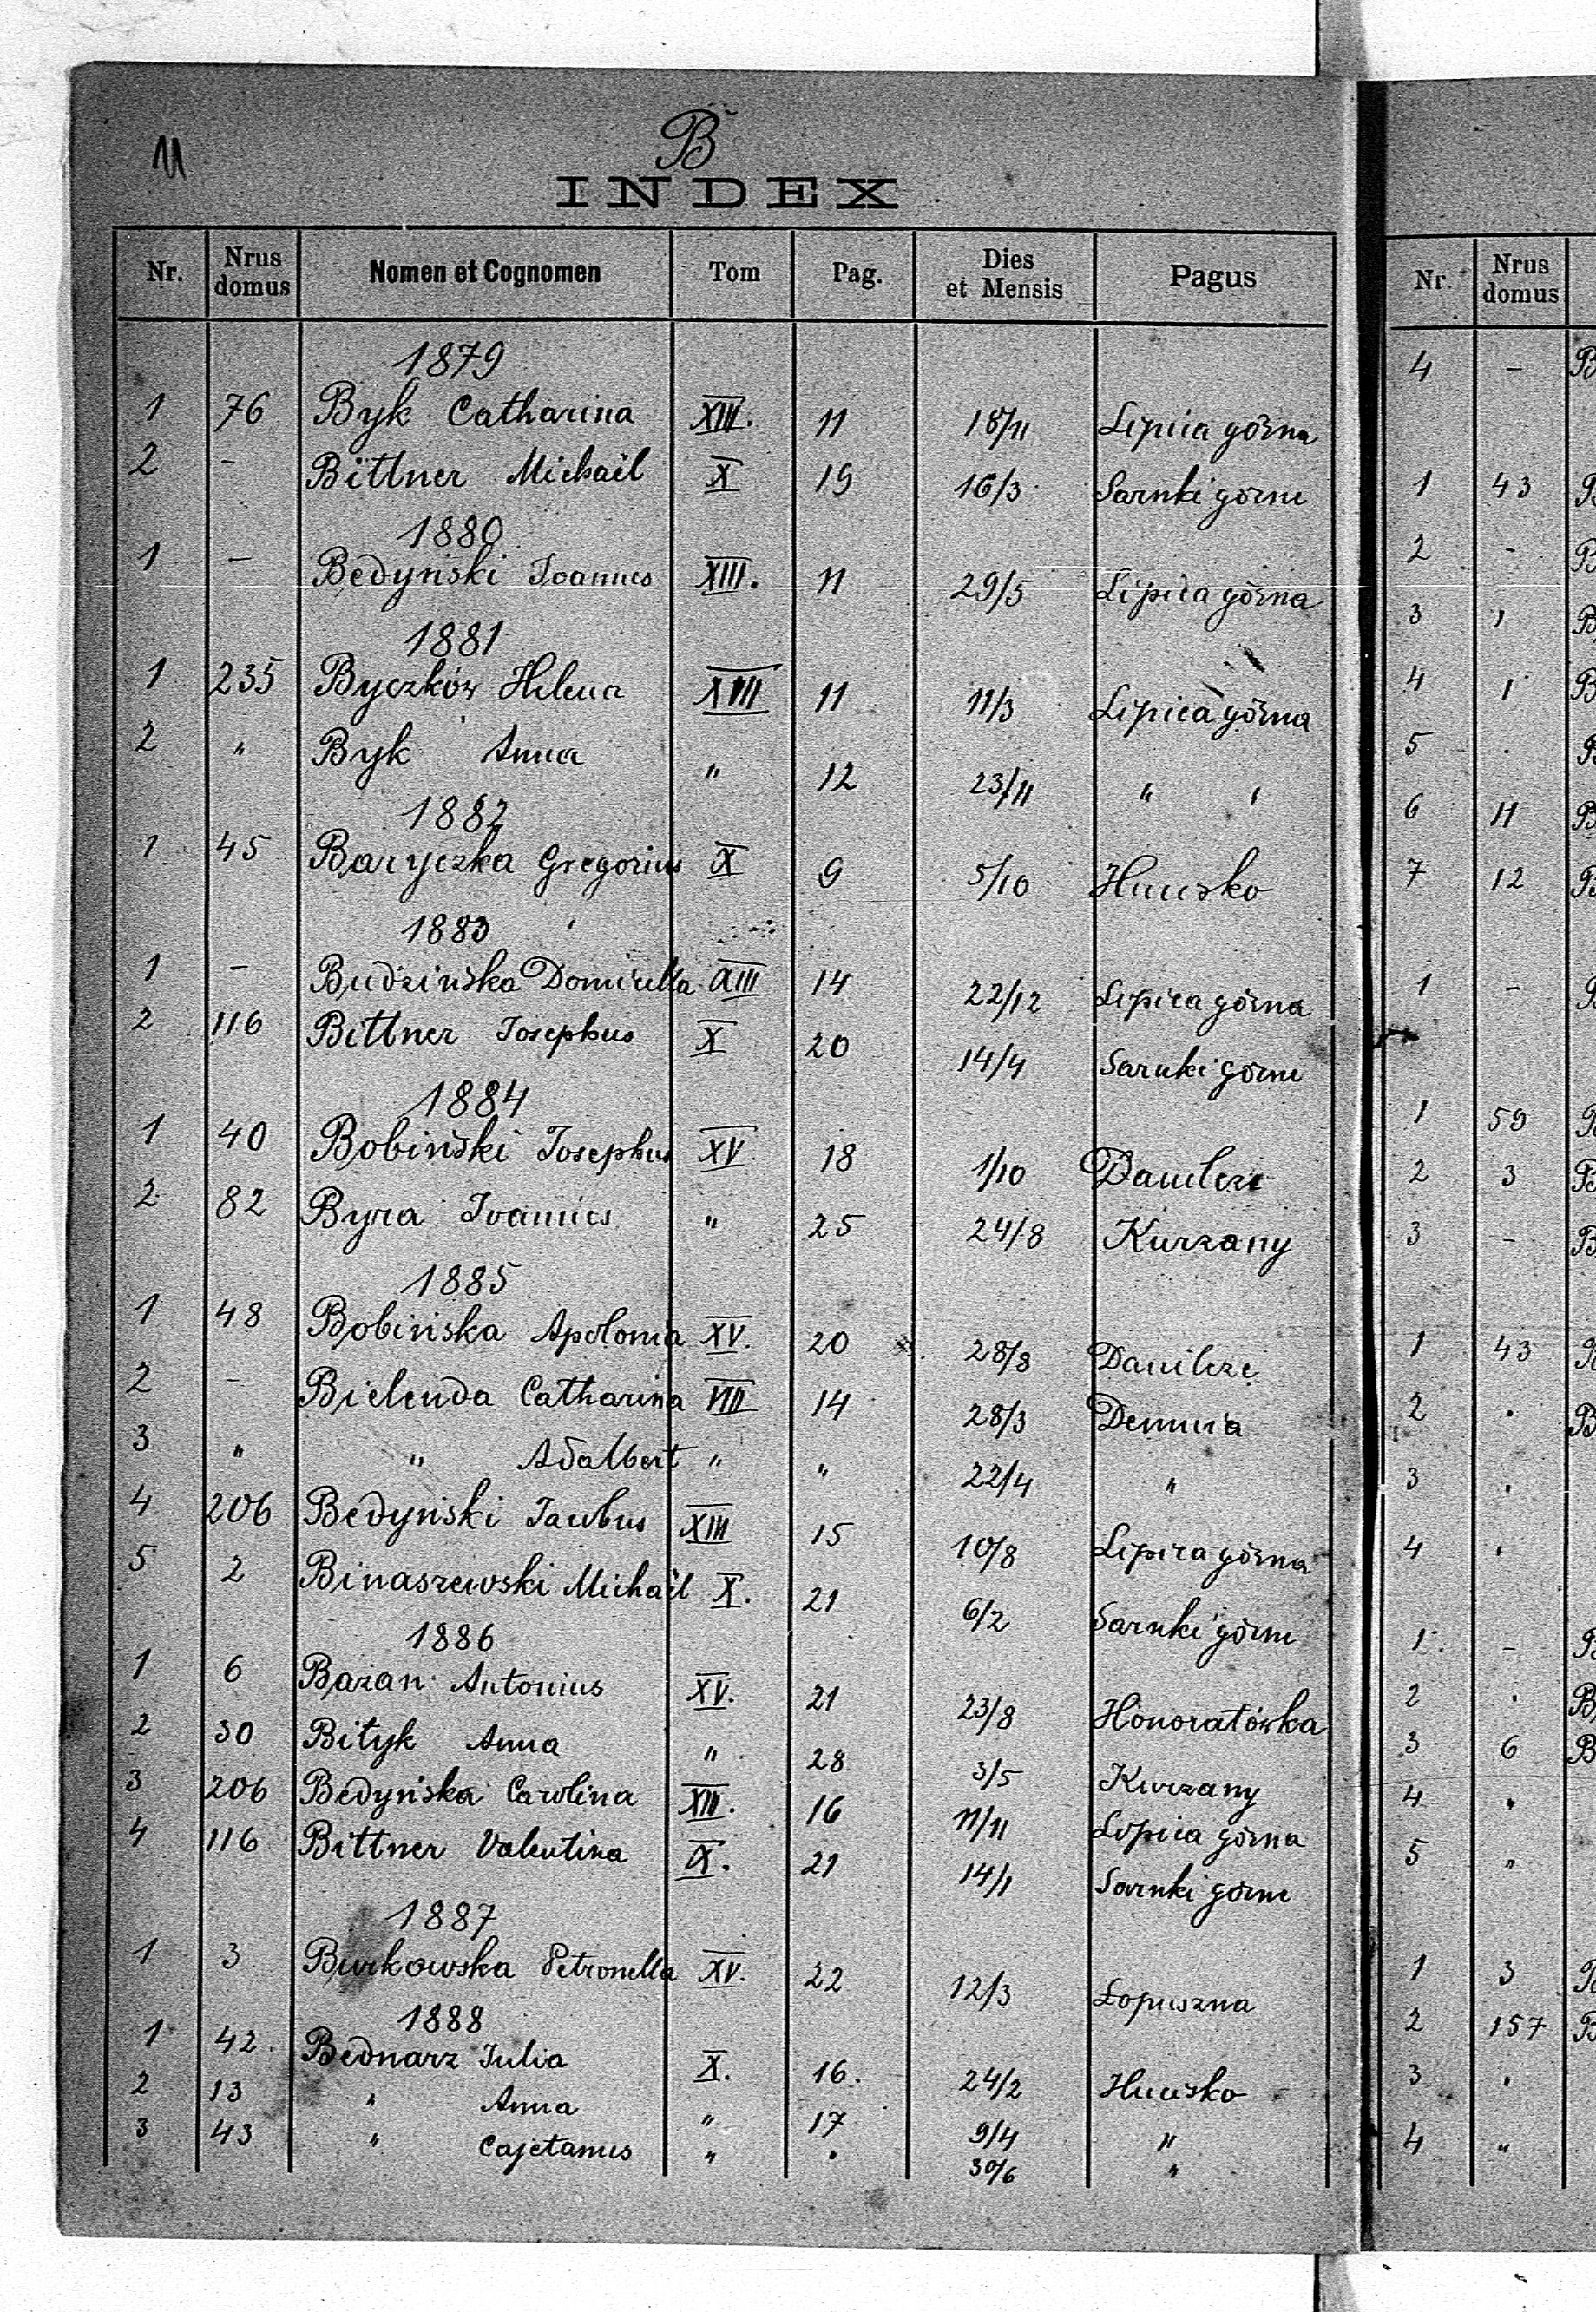 11
B
INDEX
Nr. Nrus domus Nomen et Cognomen Tom Pag. Dies et Mensis Pagus
1879
1 76 Byk Catharina XIII. 11 18/11 Lipica górna
2 - Bittner Michaël X 19 16/3 Sarnki górne
1880
1 - Bedyński Joannes XIII. 11 29/5 Lipica górna
1881
1 235 Byczków Helena XIII 11 11/3 Lipica górna
2 " Byk Anna " 12 23/11 " "
1882
1 45 Baryczka Gregorius X 9 5/10 Hucisko
1883
1 - Budzińska XIII 14 22/12 Lipica górna
2 116 Bittner Josephus X 20 14/4 Sarnki górne
1884
1 40 Bobiński Josephus XV. 18 1/10 Danilcze
2 82 Byra Joannes " 25 24/8 Kurzany
1885
1 48 Bobińska Apolonia XV. 20 28/8 Danilcze
2 - Bielenda Catharina VIII 14 28/3 Demnia
3 " " Adalbert " " 22/4 "
4 206 Bedyński Jacobus XIII 15 10/8 Lipica górna
5 2 Binaszewski Michaël X. 21 6/2 Sarnki górne
1886
1 6 Bazan Antonius XV. 21 23/8 Honoratówka
2 30 Bityk Anna " 28 3/5 Kurzany
3 206 Bedyńska Carolina XIII. 16 11/11 Lipica górna
4 116 Bittner Valentina X. 21 14/1 Sarnki górne
1887
1 3 Burkowska Petronella XV. 22 12/3 Lopuszna
1888
1 42 Bednarz Julia X. 16. 24/2 Hucisko
2 13 " Anna " 17 9/4 "
3 43 " Cajetanus " " 30/6 "
Nr. Nrus domus
4 - B
1 43 B
2 - B
3 1 B
4 1 B
5 . B
6 11 B
7 12 B
1 - B
1 59 B
2 3 B
3 - B
1 43 B
2 . B
3 .
4 .
1 - B
2 . B
3 6 B
4 "
5 "
1 3 B
2 157 B
3 "
4 "